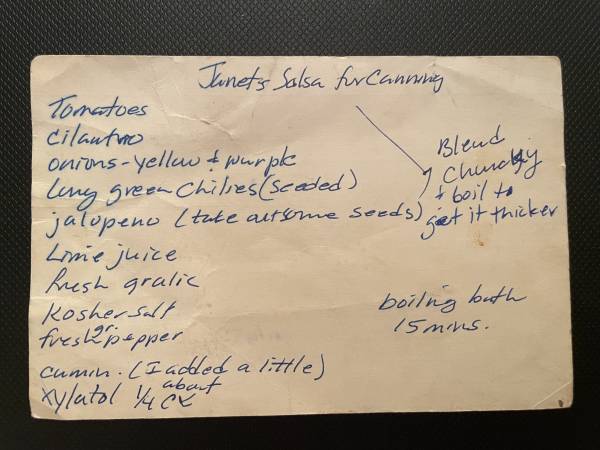 Janet's Salsa for Canning
Tomatoes
cilantro
onions-yellow & wurple
long green chilies (seeded)
jalapeno (take out some seeds)
Lime juice
fresh gralic
Kosher salt
fresh gr. pepper
cumin. (I added a little)
xylatol about 1/4 c
Blend
Chunky
& boil to
get it thicker
boiling bath
15 mins.